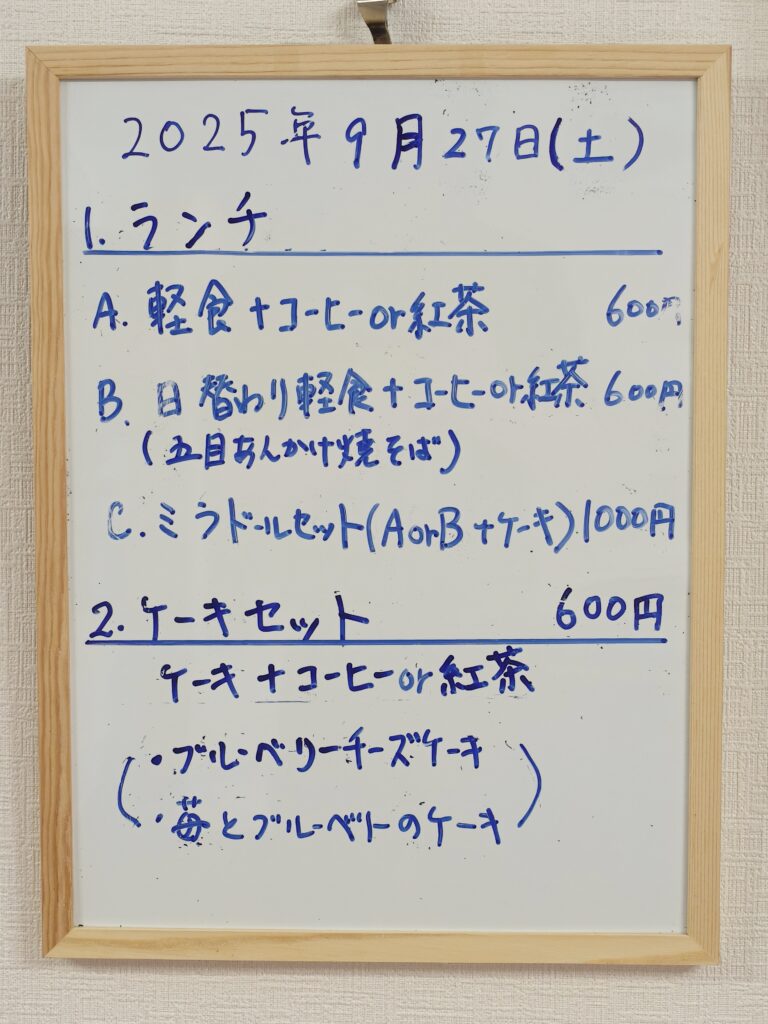 2025年9月27日(土)
1. ランチ
A. 軽食+コーヒーor紅茶 600円
B. 日替わり軽食+コーヒーor紅茶 600円
(五目あんかけ焼そば)
C. ミラドールセット(AorB+ケーキ) 1000円
2. ケーキセット 600円
ケーキ+コーヒーor紅茶
・ブルーベリーチーズケーキ
・苺とブルーベリーのケーキ